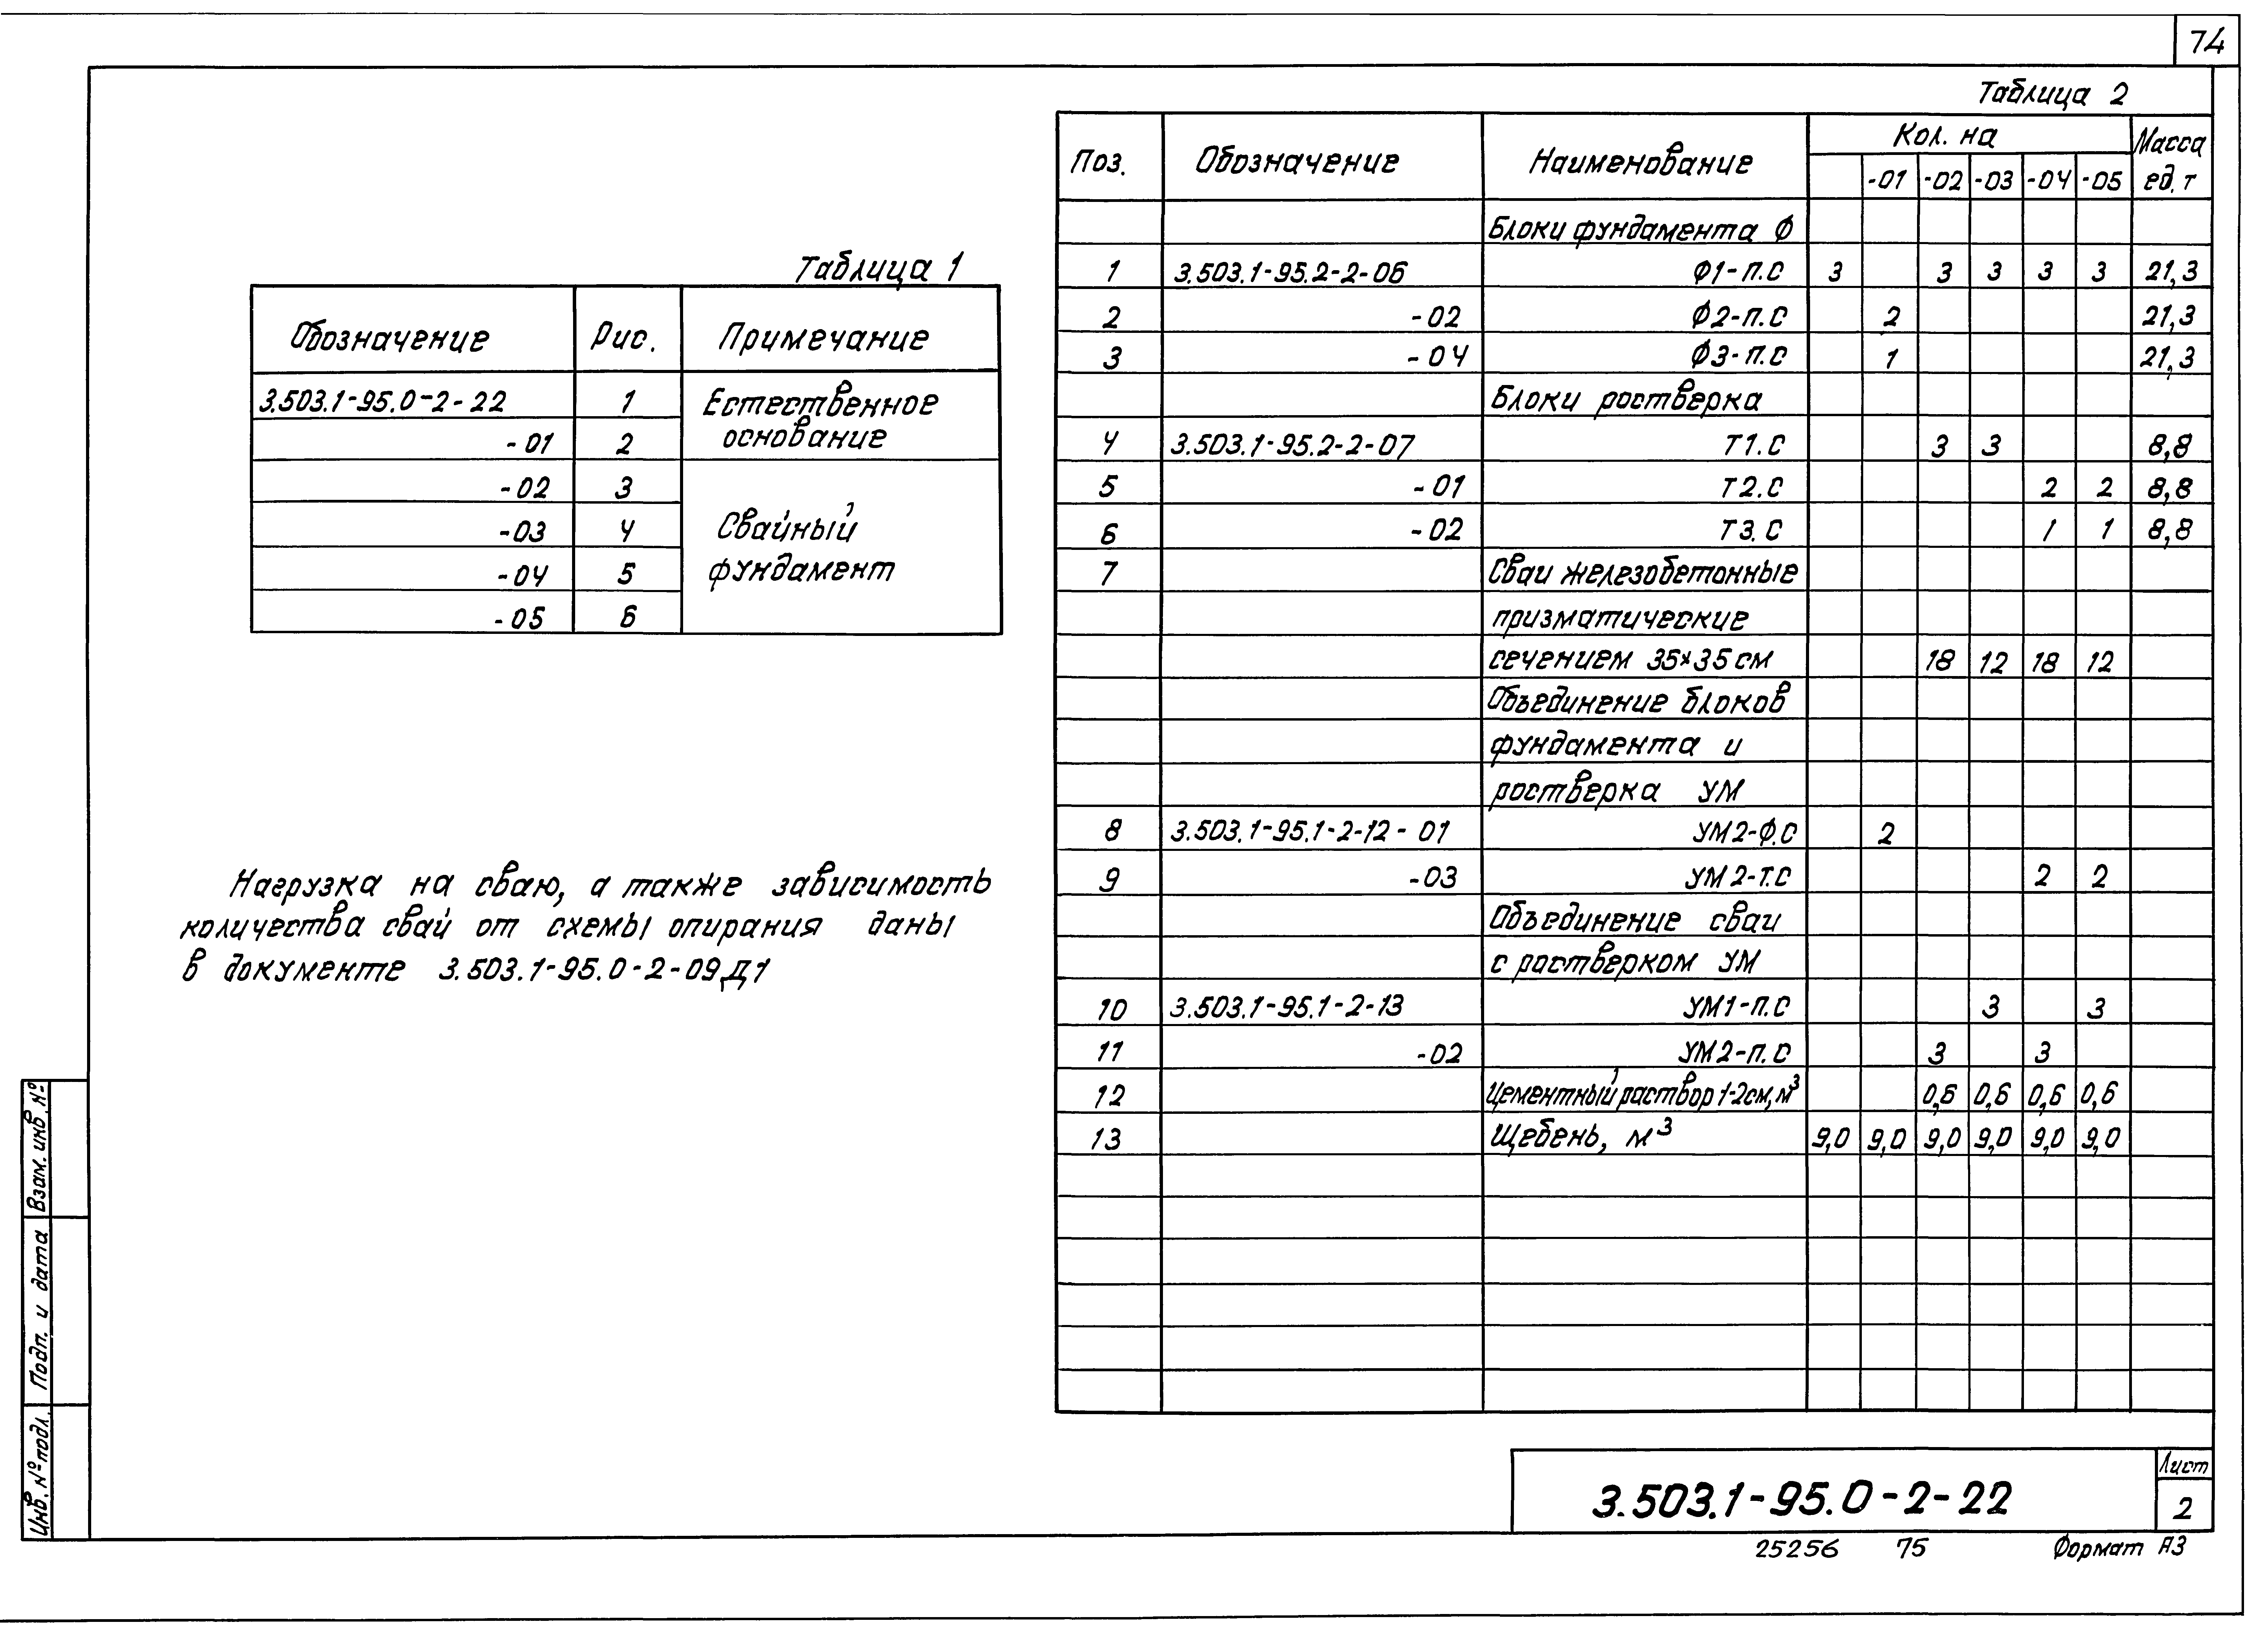 74
Таблица 1
Обозначение Рис. Примечание
3.503.1-95.0-2-22 1 Естественное
основание
-01 2
-02 3
-03 4 Свайный
-04 5 фундамент
-05 6
Нагрузка на сваю, а также зависимость
количества свай от схемы опирания даны
в документе 3.503.1-95.0-2-09Д1
Таблица 2
Поз. Обозначение Наименование Кол. на Масса ед. т
-01 -02 -03 -04 -05
Блоки фундамента Ф
1 3.503.1-95.2-2-06 Ф1-п.с 3 3 3 3 3 21,3
2 -02 Ф2-п.с 2 21,3
3 -04 Ф3-п.с 1 21,3
Блоки ростверка
4 3.503.1-95.2-2-07 Т1.с 3 3 8,8
5 -01 Т2.с 2 2 8,8
6 -02 Т3.с 1 1 8,8
7 Сваи железобетонные
призматические
сечением 35×35 см 18 12 18 12
Объединение блоков
фундамента и
ростверка УМ
8 3.503.1-95.1-2-12-01 УМ2-ф.с 2
9 -03 УМ2-т.с 2 2
Объединение сваи
с растверком УМ
10 3.503.1-95.1-2-13 УМ1-п.с 3 3
11 -02 УМ2-п.с 3 3
12 Цементный раствор 1-2см, м³ 0,6 0,6 0,6 0,6
13 Щебень, м³ 9,0 9,0 9,0 9,0 9,0 9,0
Взам. инв. №
Подп. и дата
Инв. № подл.
3.503.1-95.0-2-22
Лист
2
25256 75 Формат А3